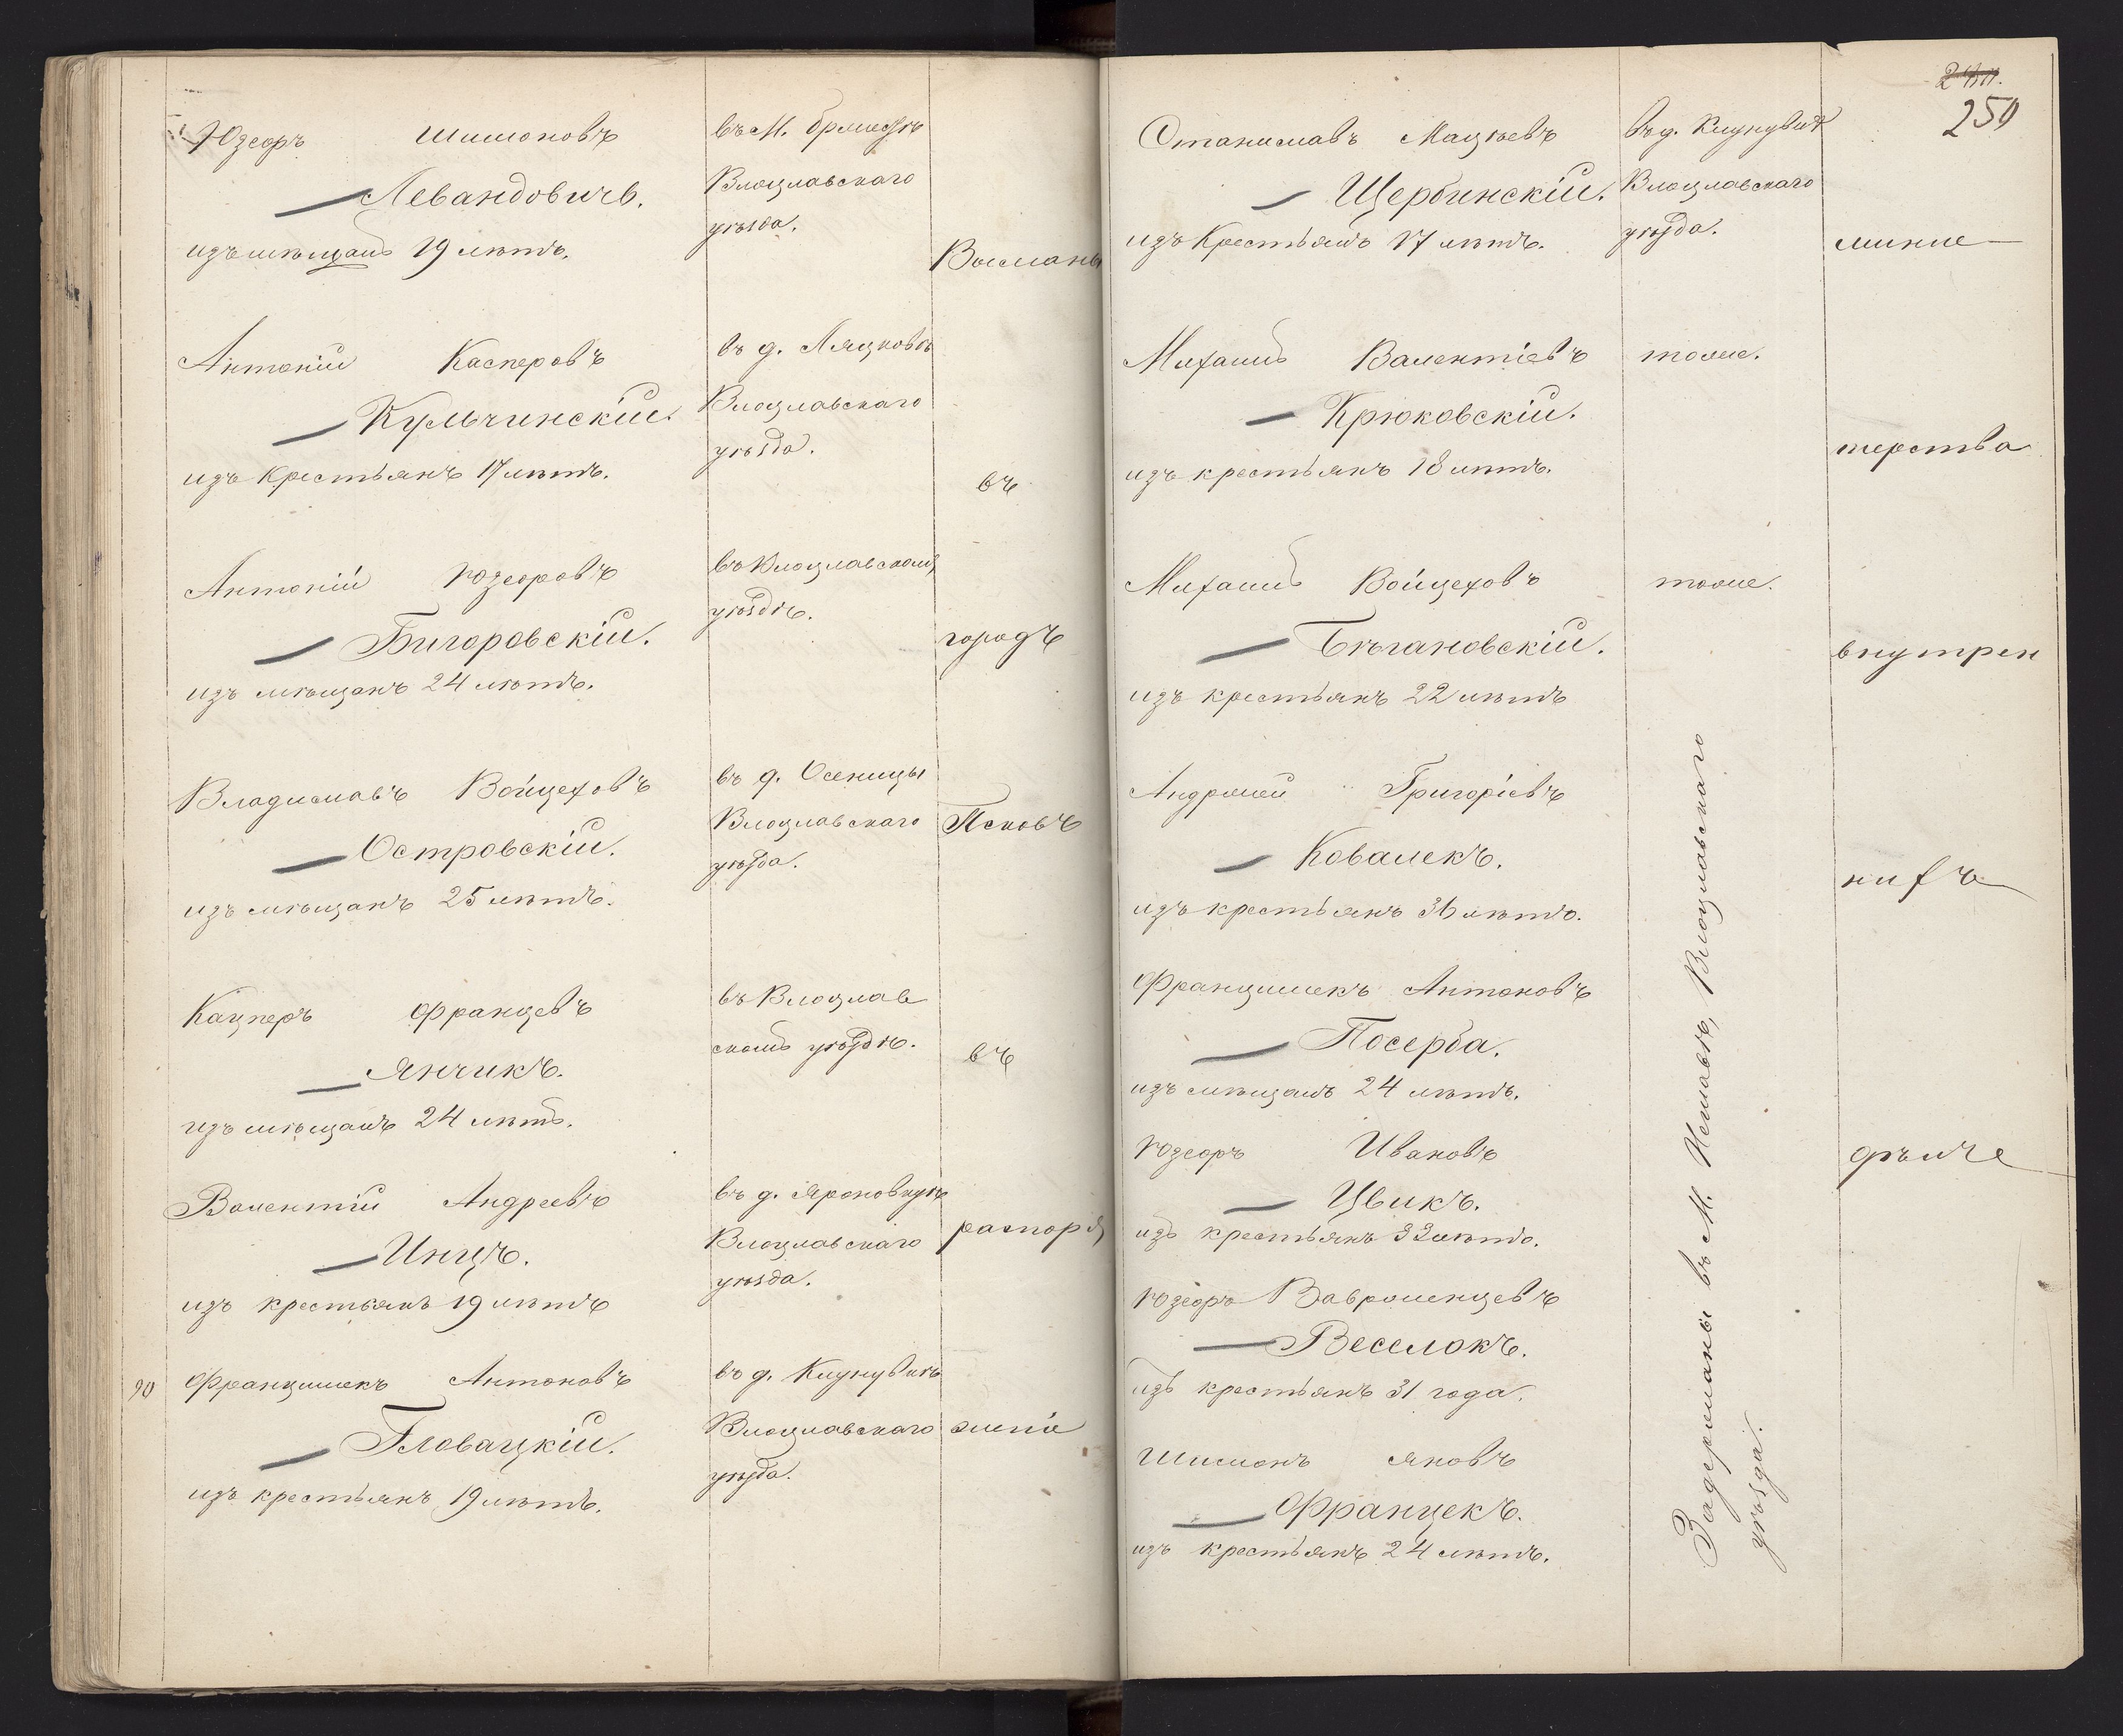 Юзефъ Шимоновъ
Левандовичъ.
изъ мѣщанъ 19 лѣтъ.
въ М.
Влоцлавскаго
уѣзда.
Антоній Касперовъ
Кульчинскій.
изъ Крестьянъ 17 лѣтъ.
въ д. Ляцковѣ
Влоцлавскаго
уѣзда.
Антоній Юзефовъ
Бигоровскій.
изъ мѣщанъ 24 лѣтъ.
въ Влоцлавскомъ
уѣздѣ.
Владиславъ Войцеховъ
Островскій.
изъ мѣщанъ 25 лѣтъ.
въ д. Осеницы
Влоцлавскаго
уѣзда.
Кацперъ Францевъ
Янчикъ.
изъ мѣщанъ 24 лѣтъ.
въ Влоцлав
скомъ уѣздѣ.
Валентій Андреевъ
Инцъ.
изъ крестьянъ 19 лѣтъ
въ д.
Влоцлавскаго
уѣзда.
90 Францишекъ Антоновъ
Гловацкій.
изъ крестьянъ 19 лѣтъ.
въ д.
Влоцлавскаго
уѣзда.
Высланы
въ
городъ
Псковъ
въ
распоря
женіе
259
Станиславъ Мацѣевъ
Щербинскій.
изъ Крестьянъ 17 лѣтъ.
въ д.
Влоцлавскаго
уѣзда.
Михаилъ Валентіевъ
Крюковскій.
изъ крестьянъ 18 лѣтъ.
тоже.
Михаилъ Войцеховъ
Бѣгановскій.
изъ крестьянъ 22 лѣтъ
тоже.
Андржей Григоріевъ
Ковалекъ.
изъ крестьянъ 36 лѣтъ.
Францишекъ Антоновъ
Посерба.
изъ мѣщанъ 24 лѣтъ.
Юзефъ Ивановъ
Цвикъ.
изъ крестьянъ 33 лѣтъ.
Юзефъ Вавроменцевъ
Веселокъ.
изъ крестьянъ 31 года.
Шимонъ Яновъ
Францекъ.
изъ крестьянъ 24 лѣтъ.
Задержаны въ М. Влоцлавскаго
уѣзда.
мини
терства
внутрен
нихъ
дѣлъ